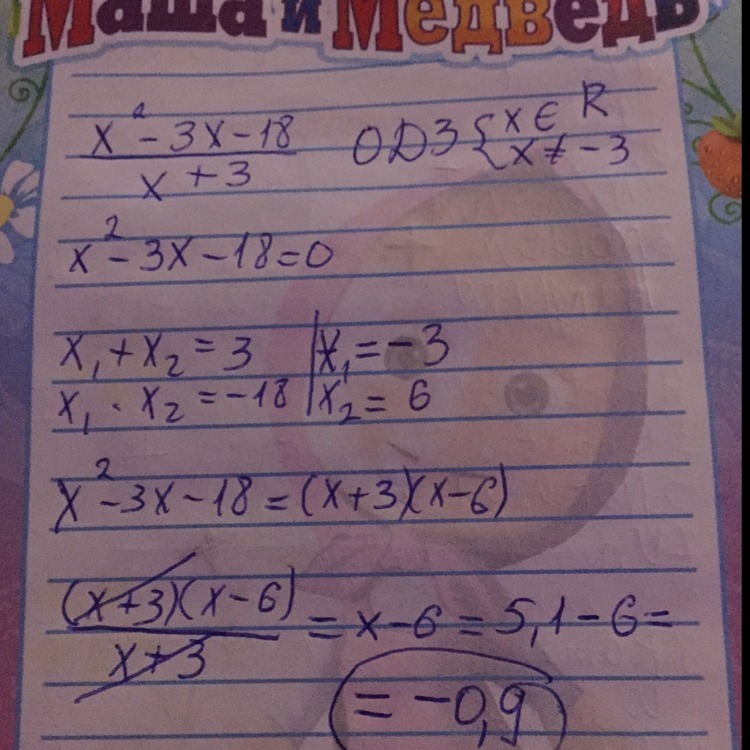 Маша и Медведь
x² - 3x - 18 / x + 3   ОДЗ { x ∈ R
x ≠ -3
x² - 3x - 18 = 0
x₁ + x₂ = 3 | x₁ = -3
x₁ · x₂ = -18 | x₂ = 6
x² - 3x - 18 = (x+3)(x-6)
(x+3)(x-6) / x+3 = x - 6 = 5,1 - 6 =
= -0,9